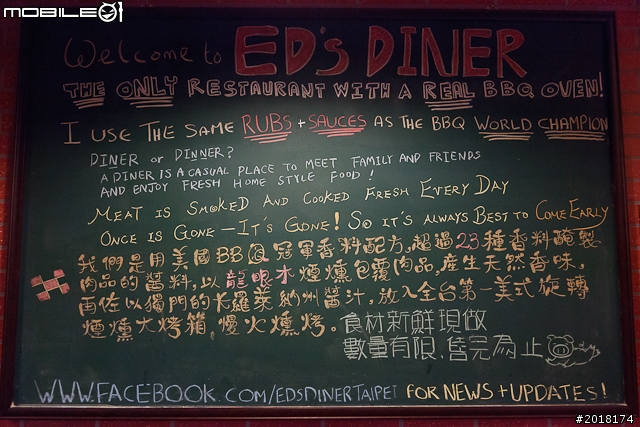 MOBILE01
Welcome to ED'S DINER
THE ONLY RESTAURANT WITH A REAL BBQ OVEN!
I USE THE SAME RUBS + SAUCES AS THE BBQ WORLD CHAMPION
DINER or DINNER?
A DINER IS A CASUAL PLACE TO MEET FAMILY AND FRIENDS
AND ENJOY FRESH HOME STYLE FOOD!
MEAT IS SMOKED AND COOKED FRESH EVERY DAY
ONCE IS GONE-IT'S GONE! SO IT'S ALWAYS BEST TO COME EARLY
我們是用美國BBQ冠軍香料配方,超過23種香料醃製
肉品的醬料,以龍眼木煙燻包覆肉品,產生天然香味,
再佐以獨門的卡羅萊納州醬汁,放入全台第一美式旋轉
煙燻大烤箱,慢火燻烤。食材新鮮現做
數量有限,售完為止
WWW.FACEBOOK.COM/EDSDINERTAIPEI FOR NEWS + UPDATES!
#2018174